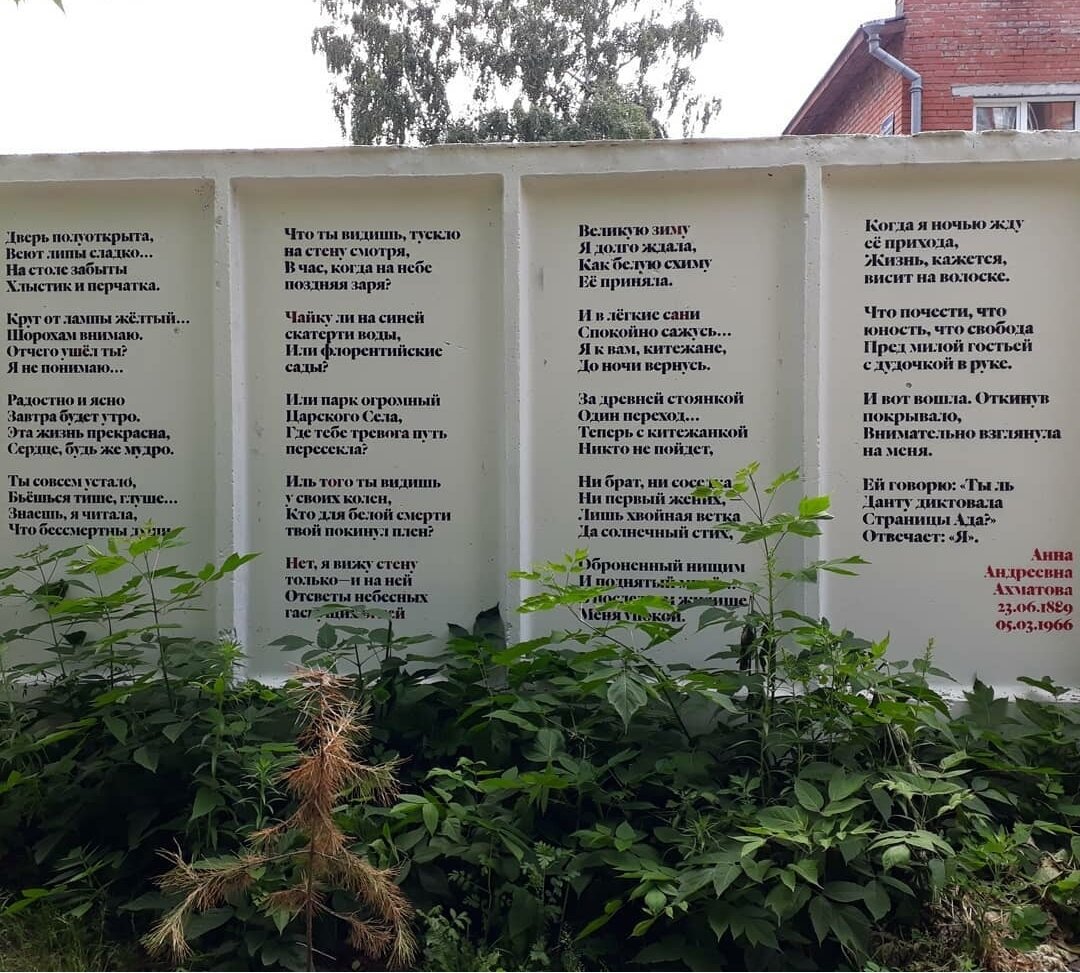 Дверь полуоткрыта,
Веют липы сладко...
На столе забыты
Хлыстик и перчатка.
Круг от лампы жёлтый...
Шорохам внимаю.
Отчего ушёл ты?
Я не понимаю...
Радостно и ясно
Завтра будет утро.
Эта жизнь прекрасна,
Сердце, будь же мудро.
Ты совсем устало,
Бьёшься тише, глуше...
Знаешь, я читала,
Что бессмертны души.
Что ты видишь, тускло
на стену смотря,
В час, когда на небе
поздняя заря?
Чайку ли на синей
скатерти воды,
Или флорентийские
сады?
Или парк огромный
Царского Села,
Где тебе тревога путь
пересекла?
Иль того ты видишь
у своих колен,
Кто для белой смерти
твой покинул плен?
Нет, я вижу стену
только—и на ней
Отсветы небесных
гаснущих огней
Великую зиму
Я долго ждала,
Как белую схиму
Её приняла.
И в лёгкие сани
Спокойно сажусь...
Я к вам, китежане,
До ночи вернусь.
За древней стоянкой
Один переход...
Теперь с китежанкой
Никто не пойдет,
Ни брат, ни соседка
Ни первый жених,
Лишь хвойная ветка
Да солнечный стих,
Оброненный нищим
И поднятый
жилище
Меня упокой.
Когда я ночью жду
её прихода,
Жизнь, кажется,
висит на волоске.
Что почести, что
юность, что свобода
Пред милой гостьей
с дудочкой в руке.
И вот вошла. Откинув
покрывало,
Внимательно взглянула
на меня.
Ей говорю: «Ты ль
Данту диктовала
Страницы Ада?»
Отвечает: «Я».
Анна
Андреевна
Ахматова
23.06.1889
05.03.1966